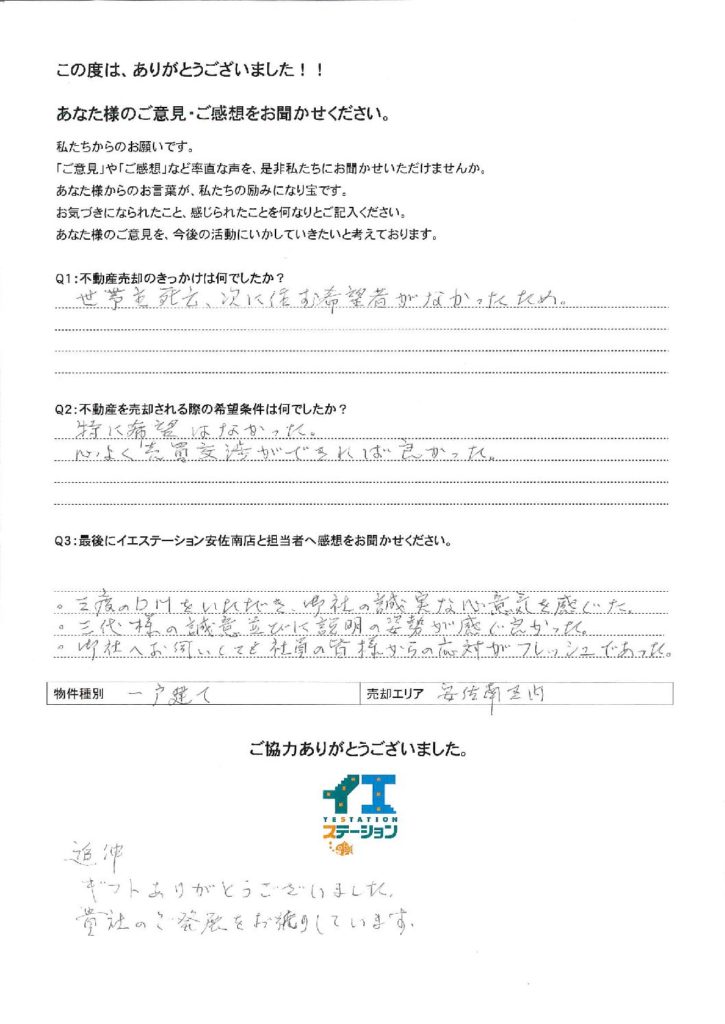 この度は、ありがとうございました！！
あなた様のご意見・ご感想をお聞かせください。
私たちからのお願いです。
「ご意見」や「ご感想」など率直な声を、是非私たちにお聞かせいただけませんか。
あなた様からのお言葉が、私たちの励みになり宝です。
お気づきになられたこと、感じられたことを何なりとご記入ください。
あなた様のご意見を、今後の活動にいかしていきたいと考えております。
Q1：不動産売却のきっかけは何でしたか？
世帯主死去、次に住む希望者がなかったため。
Q2：不動産を売却される際の希望条件は何でしたか？
特に希望はなかった。
心よく売買交渉ができれば良かった。
Q3：最後にイエステーション安佐南店と担当者へ感想をお聞かせください。
。三度の をいただき、御社の誠実な心意気を感じた。
。三代様の誠意並びに説明の姿勢が感じ良かった。
。御社へお伺いしても社員の皆様からの応対がフレッシュであった。
物件種別 一戸建て 売却エリア 安佐南区内
ご協力ありがとうございました。
イエ
YESTATION
ステーション
追伸
ギフトありがとうございました。
貴社のご発展をお祈りしています。